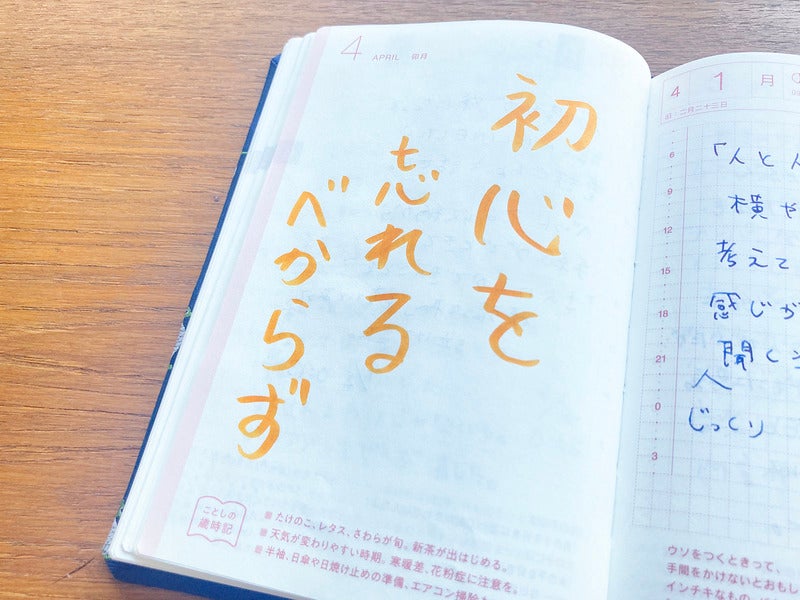 4 APRIL 卯月
初心を
忘れる
べからず
ことしの
歳時記
たけのこ、レタス、さわらが旬。新茶が出はじめる。
天気が変わりやすい時期。寒暖差、花粉症に注意を。
半袖、日傘や日焼け止めの準備、エアコン掃除
4 1 月
二月二十三日
6
9
12
15
18
21
0
3
「人と
横や
考えて
感じが
聞く
人
じっくり
ウソをつくときって、
手間をかけないとおもし
インチキなもの